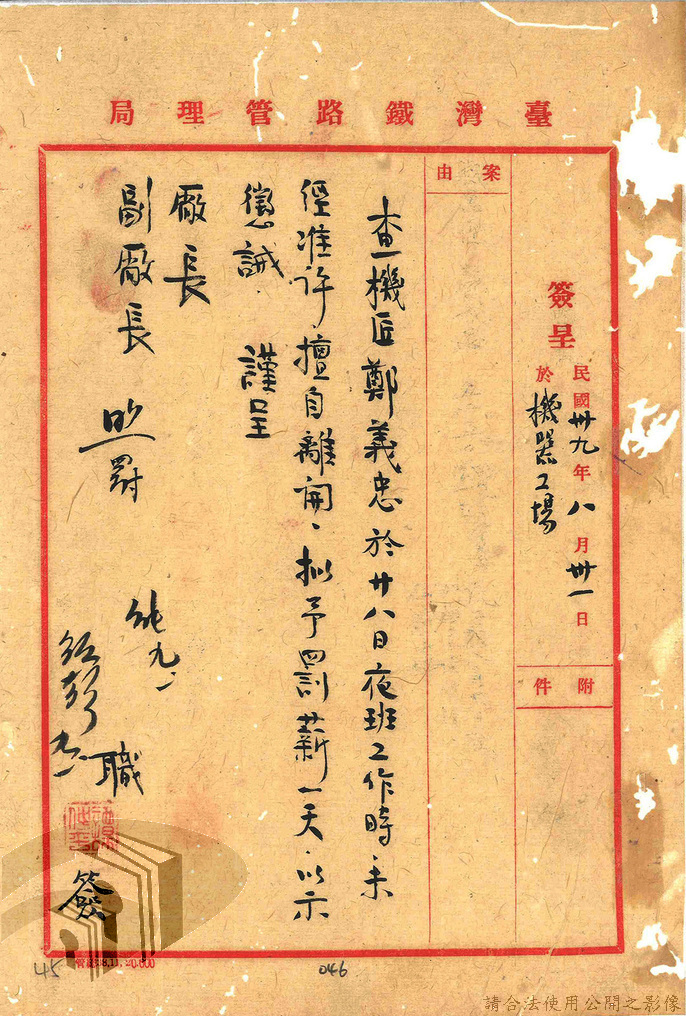 臺灣鐵路管理局
簽呈
民國卅九年八月卅一日
於機器工場
附件
案由
查機匠鄭義忠於廿八日夜班工作時、未
經准許擅自離開、拟予罰薪一天、以示
懲誡、謹呈
廠長
副廠長
照罰
九、一
職
簽
45
046
請合法使用公開之影像